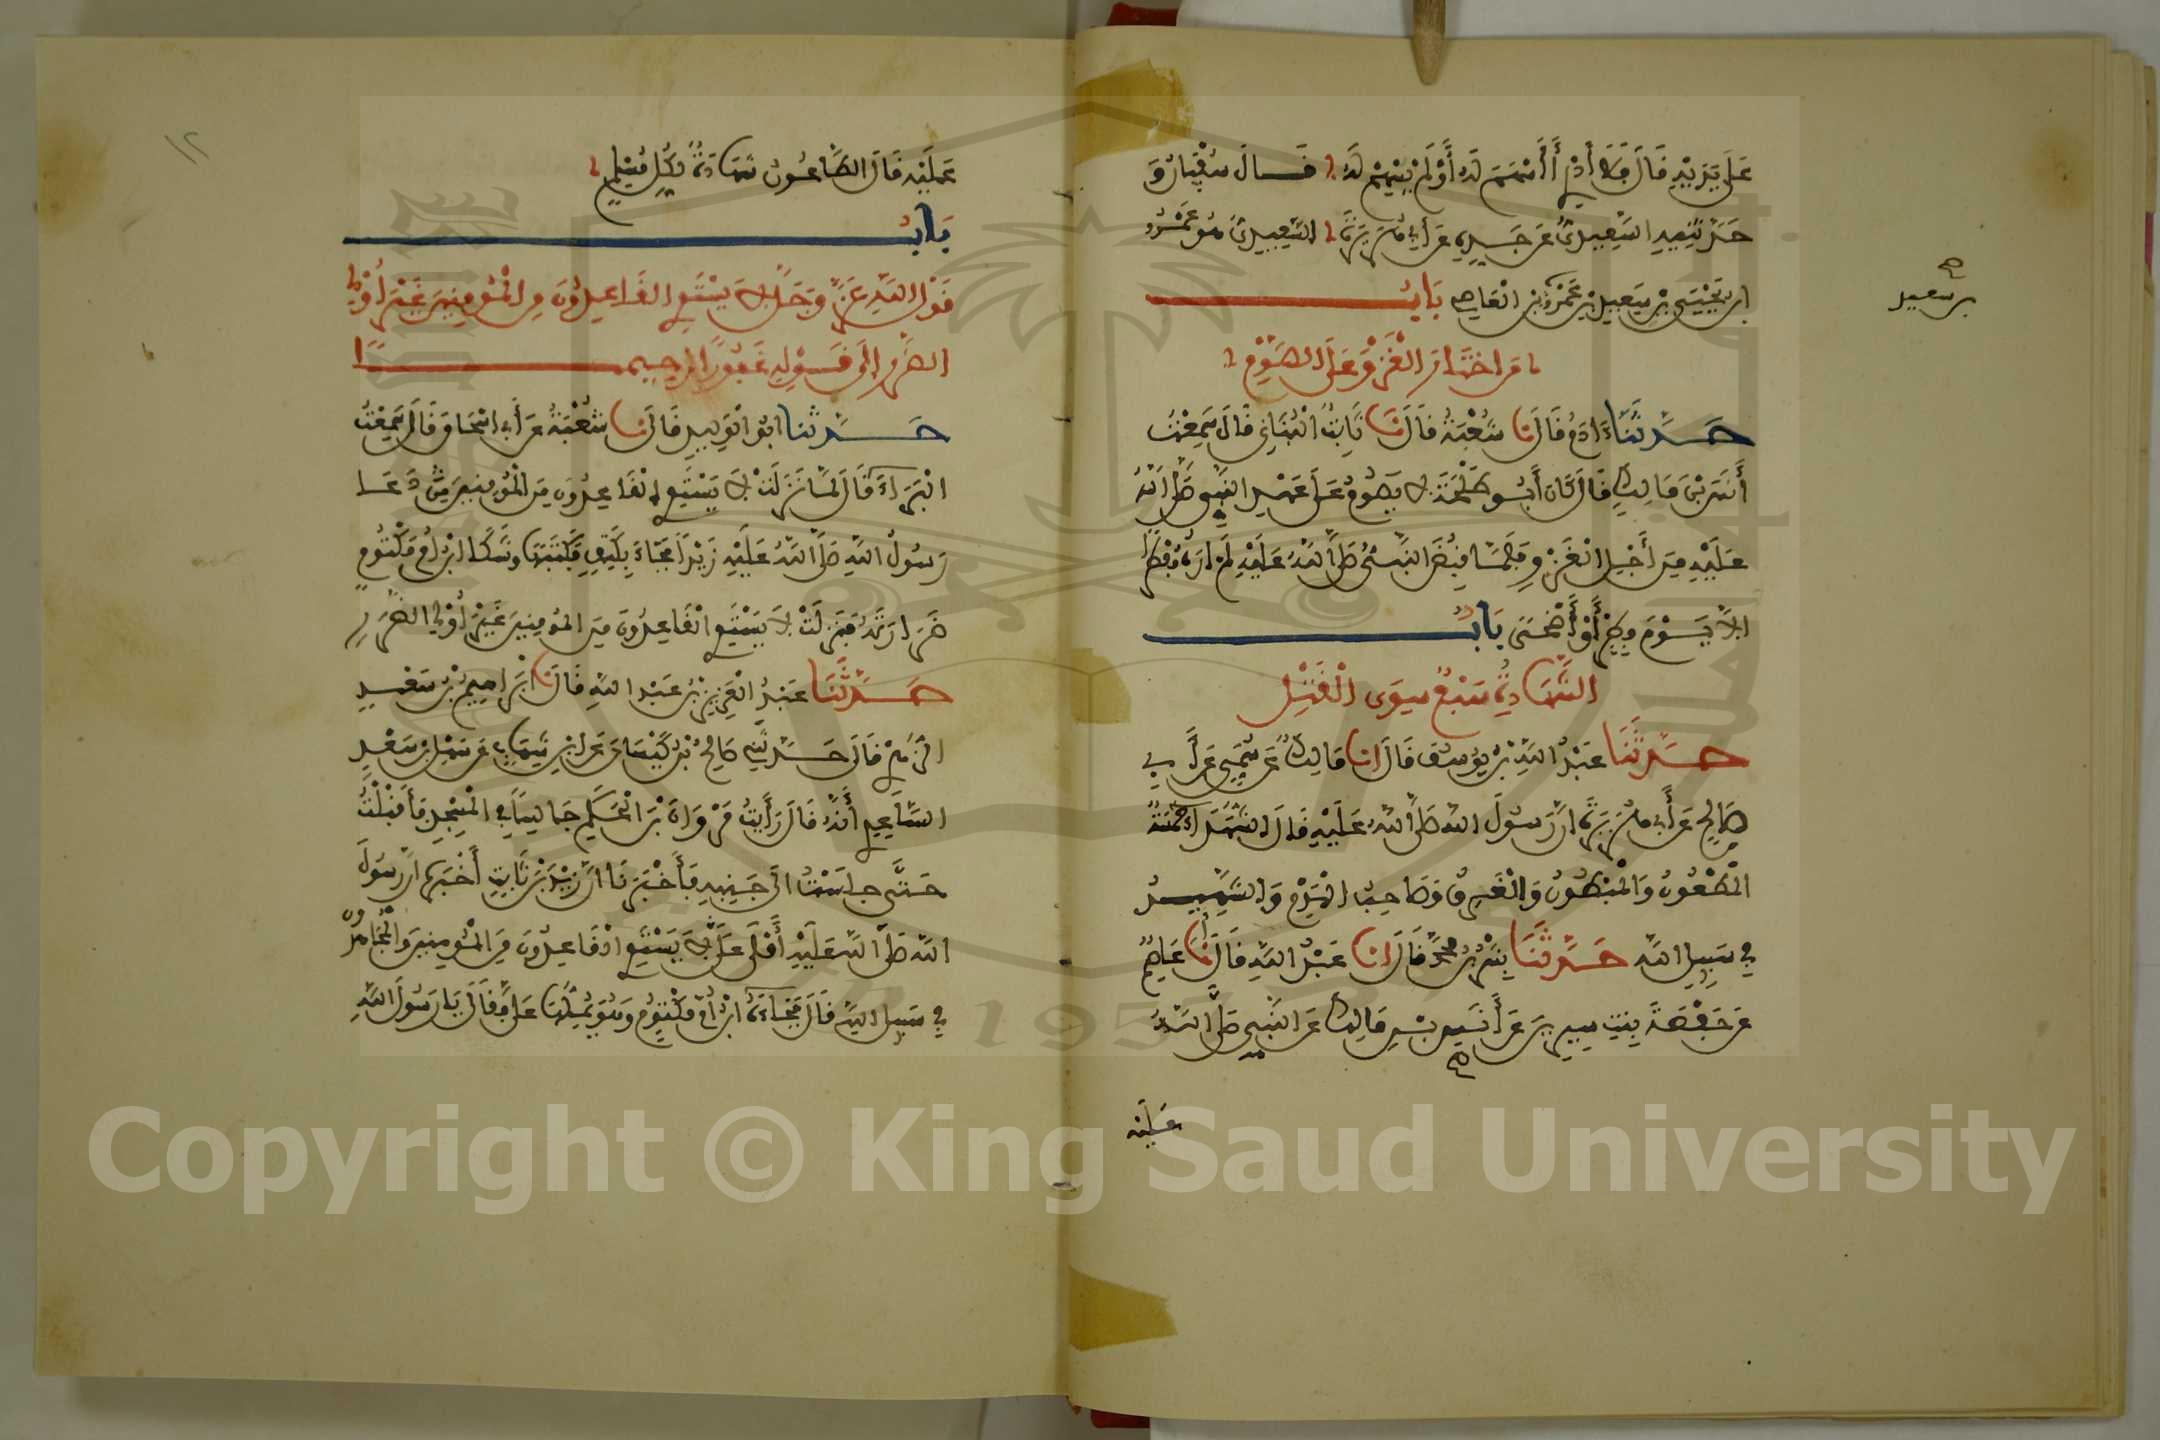 عَلَى يَدَيْهِ قَالَ فَلَا أَدْرِي أَأَسْهَمَ لَهُ أَوْ لَمْ يُسْهِمْ لَهُ قَالَ سُفْيَانُ وَ
حَدَّثَنِيهِ السَّعِيدِيُّ عَن جَدِّهِ عَن أَبِي هُرَيْرَةَ السَّعِيدِيُّ هُوَ عَمْرُو
ابن يَحْيَى بْنِ سَعِيدِ بْنِ عَمْرِو بْنِ الْعَاصِ بَابُ
بن سعيد
مَنِ اخْتَارَ الْغَزْوَ عَلَى الصَّوْمِ
حَدَّثَنَا ءَادَمُ قَالَ نَا شُعْبَةُ قَالَ نَا ثَابِتٌ الْبُنَانِي قَالَ سَمِعْتُ
أَنَسَ بْنَ مَالِكٍ قَالَ كَانَ أَبُو طَلْحَةَ لَا يَصُومُ عَلَى عَهْدِ النَّبِي صَلَّى اللهُ
عَلَيْهِ مِن أَجْلِ الْغَزْوِ فَلَمَّا قُبِضَ النَّبِيُّ صَلَّى اللهُ عَلَيْهِ لَمْ أَرَهُ مُفْطِرًا
إلَّا يَوْمَ فِطْرٍ أَوْ أَضْحَى بَابُ
الشَّهَادَةُ سَبْعٌ سِوَى الْقَتْلِ
حَدَّثَنَا عَبْدُ اللهِ بْنُ يُوسُفَ قَالَ انَا مَالِكٌ عَن سُمَيٍّ عَن أَبِي
صَالِحٍ عَن أَبِي هُرَيْرَةَ انَّ رَسُولَ اللهِ صَلَّى اللهُ عَلَيْهِ قَالَ الشُّهَدَاءُ خَمْسَةٌ
الْمَطْعُونُ وَالْمَبْطُونُ وَالْغَرِقُ وَصَاحِبُ الْهَدْمِ وَالشَّهِيدُ
فِي سَبِيلِ اللهِ حَدَّثَنَا بِشْرُ بْنُ مُحَمَّدٍ قَالَ انَا عَبْدُ اللهِ قَالَ انَا عَاصِمٌ
عَن حَفْصَةَ بِنْتِ سِيرِينَ عَن أَنَسِ بْنِ مَالِكٍ عَنِ النَّبِي صَلَّى اللهُ
عليه
١٢
عَلَيْهِ قَالَ الطَّاعُونُ شَهَادَةٌ لِكُلِّ مُسْلِمٍ
بَابُ
قَوْلِ اللهِ عَزَّ وَجَلَّ لَا يَسْتَوِي الْقَاعِدُونَ مِنَ الْمُؤْمِنِينَ غَيْرَ أُوْلِي
الضَّرَرِ إِلَى قَوْلِهِ غَفُورًا رَحِيمًا
حَدَّثَنَا أَبُو الْوَلِيدِ قَالَ نَا شُعْبَةُ عَن أَبِي اسْحَاقَ قَالَ سَمِعْتُ
الْبَرَاءَ قَالَ لَمَّا نَزَلَتْ لَا يَسْتَوِي الْقَاعِدُونَ مِنَ الْمُؤْمِنِينَ دَعَا
رَسُولُ اللهِ صَلَّى اللهُ عَلَيْهِ زَيْدًا فَجَاءَ بِكَتِفٍ فَكَتَبَهَا وشَكَا ابْنُ أُمِّ مَكْتُومٍ
ضَرَارَتَهُ فَنَزَلَتْ لَا يَسْتَوِي الْقَاعِدُونَ مِنَ الْمُؤْمِنِينَ غَيْرَ أُوْلِي الضَّرَرِ
حَدَّثَنَا عَبْدُ الْعَزِيزِ بْنُ عَبْدِ اللهِ قَالَ نَا إِبْرَاهِيمُ بْنُ سَعْدٍ
الزُّهْرِيُّ قَالَ حَدَّثَنِي صَالِحُ بْنُ كَيْسَانَ عَن ابْنِ شِهَابٍ عَن سَهْلِ بْنِ سَعْدٍ
السَّاعِدِي أَنَّهُ قَالَ رَأَيْتُ مَرْوَانَ بْنَ الْحَكَمِ جَالِسًا فِي الْمَسْجِدِ فَأَقْبَلْتُ
حَتَّى جَلَسْتُ إِلَى جَنْبِهِ فَأَخْبَرَنَا انَّ زَيْدَ بْنَ ثَابِتٍ أَخْبَرَهُ انَّ رَسُولَ
اللهِ صَلَّى اللهُ عَلَيْهِ أَمْلَى عَلَيَّ لَا يَسْتَوِي الْقَاعِدُونَ مِنَ الْمُؤْمِنِينَ وَالْمُجَاهِدُونَ
فِي سَبِيلِ اللهِ قَالَ فَجَاءَهُ ابْنُ أُمِّ مَكْتُومٍ وَهُوَ يُمِلُّهَا عَلَيَّ فَقَالَ يَا رَسُولَ اللهِ
Copyright © King Saud University
1957